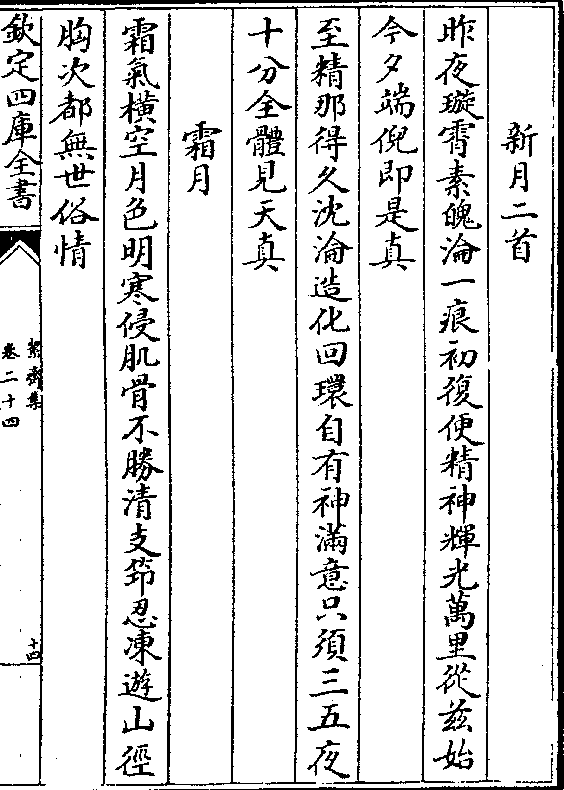 新月二首
昨夜璇霄素魄淪一痕初復便精神輝光萬里從兹始
今夕端倪即是真
至精那得久沈淪造化回環自有神滿意只須三五夜
十分全體見天真
霜月
霜氣橫空月色明寒侵肌骨不勝清支筇忍凍遊山徑
胸次都無世俗情
欽定四庫全書
絜齋集
卷二十四
十四